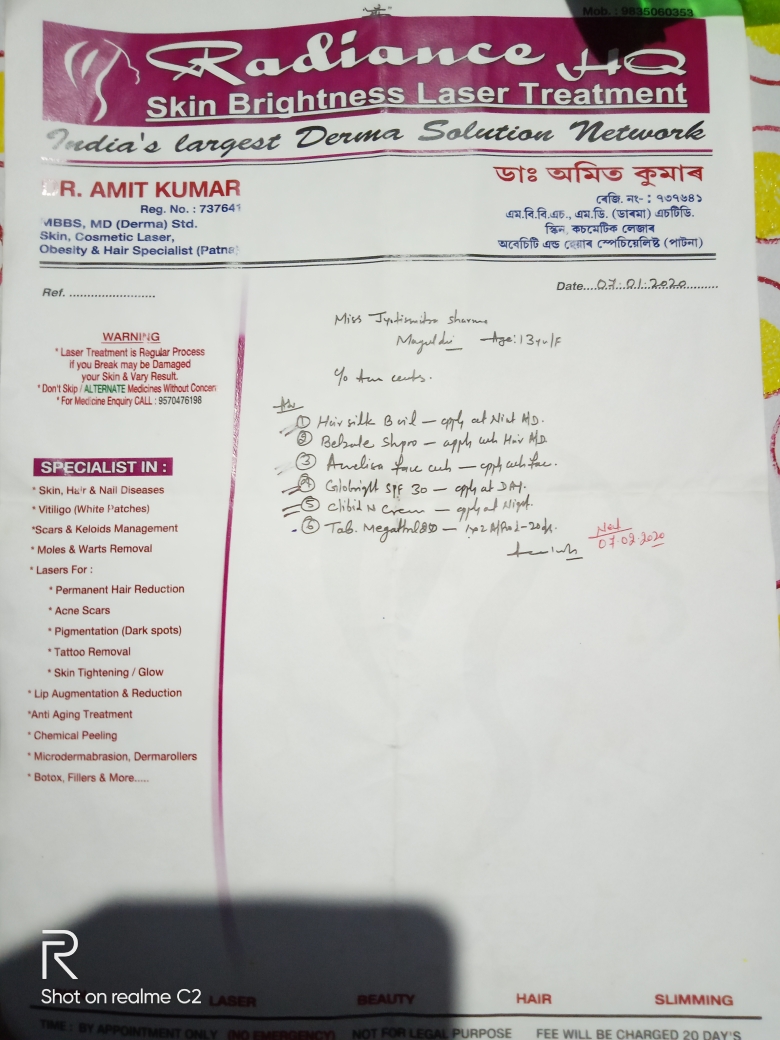 Mob. : 9835060353
Radiance HQ
Skin Brightness Laser Treatment
India's largest Derma Solution Network
DR. AMIT KUMAR
Reg. No. : 737641
MBBS, MD (Derma) Std.
Skin, Cosmetic Laser,
Obesity & Hair Specialist (Patna)
ডাঃ অমিত কুমাৰ
ৰেজি. নং- : ৭৩৭৬৪১
এম.বি.বি.এচ., এম.ডি. (ডাৰমা) এচটিডি.
স্কিন, কচমেটিক লেজাৰ
অবেচিটি এন্ড হেয়াৰ স্পেচিয়েলিষ্ট (পাটনা)
Ref. ..........................
Date....07.01.2020..........
Miss Jyotismita Sharma
Age: 13yr/F
WARNING
* Laser Treatment is Regular Process
if you Break may be Damaged
your Skin & Vary Result.
* Don't Skip / ALTERNATE Medicines Without Concern
* For Medicine Enquiry CALL : 9570476198
① Hair silk B oil — apply at Night
② — apply with Hair
③ face wash — apply with face.
④ Globright SPF 30 — apply at DAY.
⑤ Clibid N Cream — apply at Night.
⑥ Tab.
Next
07.02.2020
SPECIALIST IN :
* Skin, Hair & Nail Diseases
* Vitiligo (White Patches)
*Scars & Keloids Management
* Moles & Warts Removal
* Lasers For :
* Permanent Hair Reduction
* Acne Scars
* Pigmentation (Dark spots)
* Tattoo Removal
* Skin Tightening / Glow
* Lip Augmentation & Reduction
*Anti Aging Treatment
* Chemical Peeling
* Microdermabrasion, Dermarollers
* Botox, Fillers & More.....
LASER BEAUTY HAIR SLIMMING
TIME : BY APPOINTMENT ONLY (NO EMERGENCY) NOT FOR LEGAL PURPOSE FEE WILL BE CHARGED 20 DAY'S
R
Shot on realme C2